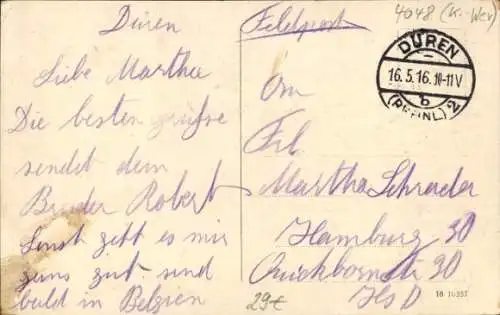 Düren
Liebe Martha
Die besten grüsse
sendet dein
Bruder Robert
Sonst geht es mir
ganz gut sind
bald in Belgien
Feldpost
4048 (K.-Wer)
DÜREN
16.5.16.10-11V
b
(RHEINL) 2
An
Frl
Martha Schrader
Hamburg 30
Quickbornstr 30
Hs D
29€
16 10357